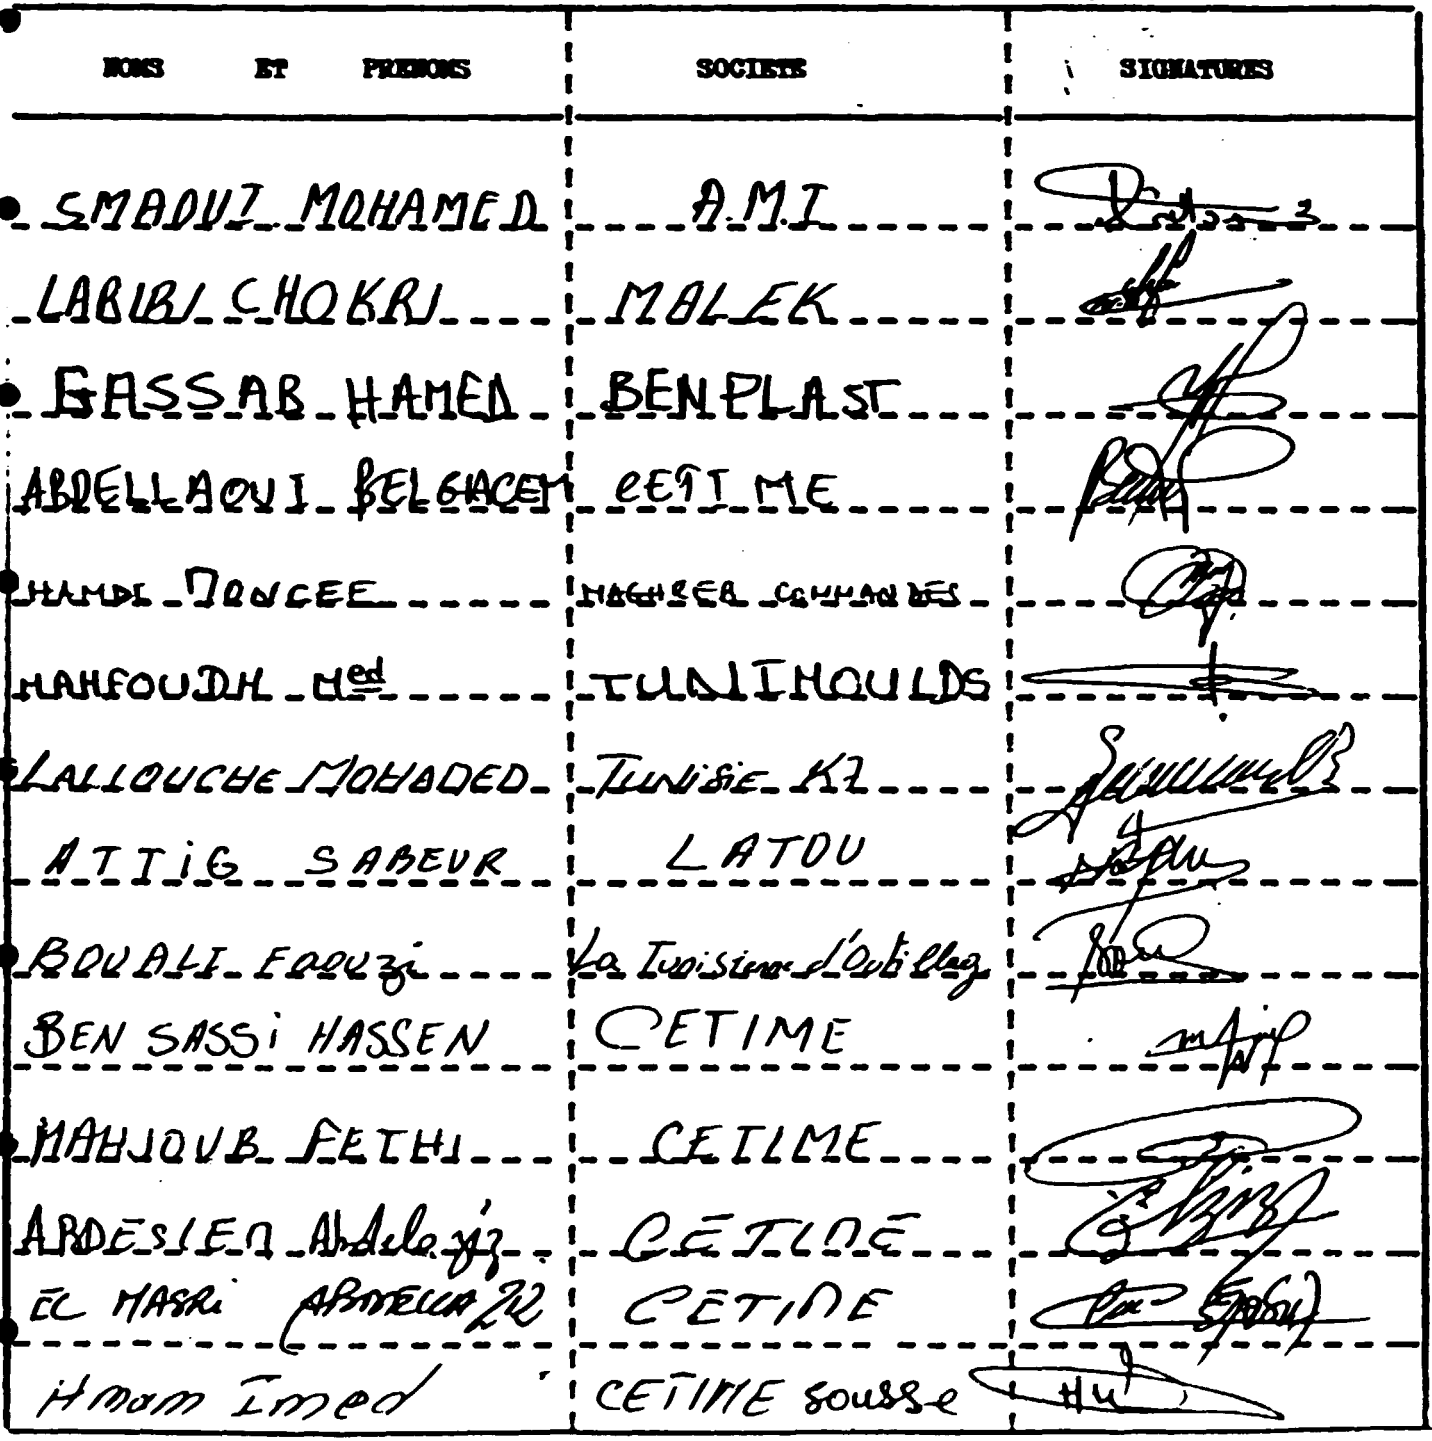 NOMS ET PRENOMS SOCIETE SIGNATURES
SMAOUI MOHAMED A.M.I
LABIBI CHOKRI MALEK
GASSAB HAMED BENPLAST
ABDELLAOUI BELGHACEM CETIME
HAMDI MONCEF MAGHREB COMMANDES
MAHFOUDH Med TUNIMOULDS
LALLOUCHE MOHAMED Tunisie K7
ATTIG SABEUR LATOU
BOUALI Faouzi La Tunisienne d'Outillage
BEN SASSI HASSEN CETIME
MAHJOUB FETHI CETIME
ABDESLEM Abdelaziz CETIME
EL MASRI CETIME
Hmam Imed CETIME SOUSSE